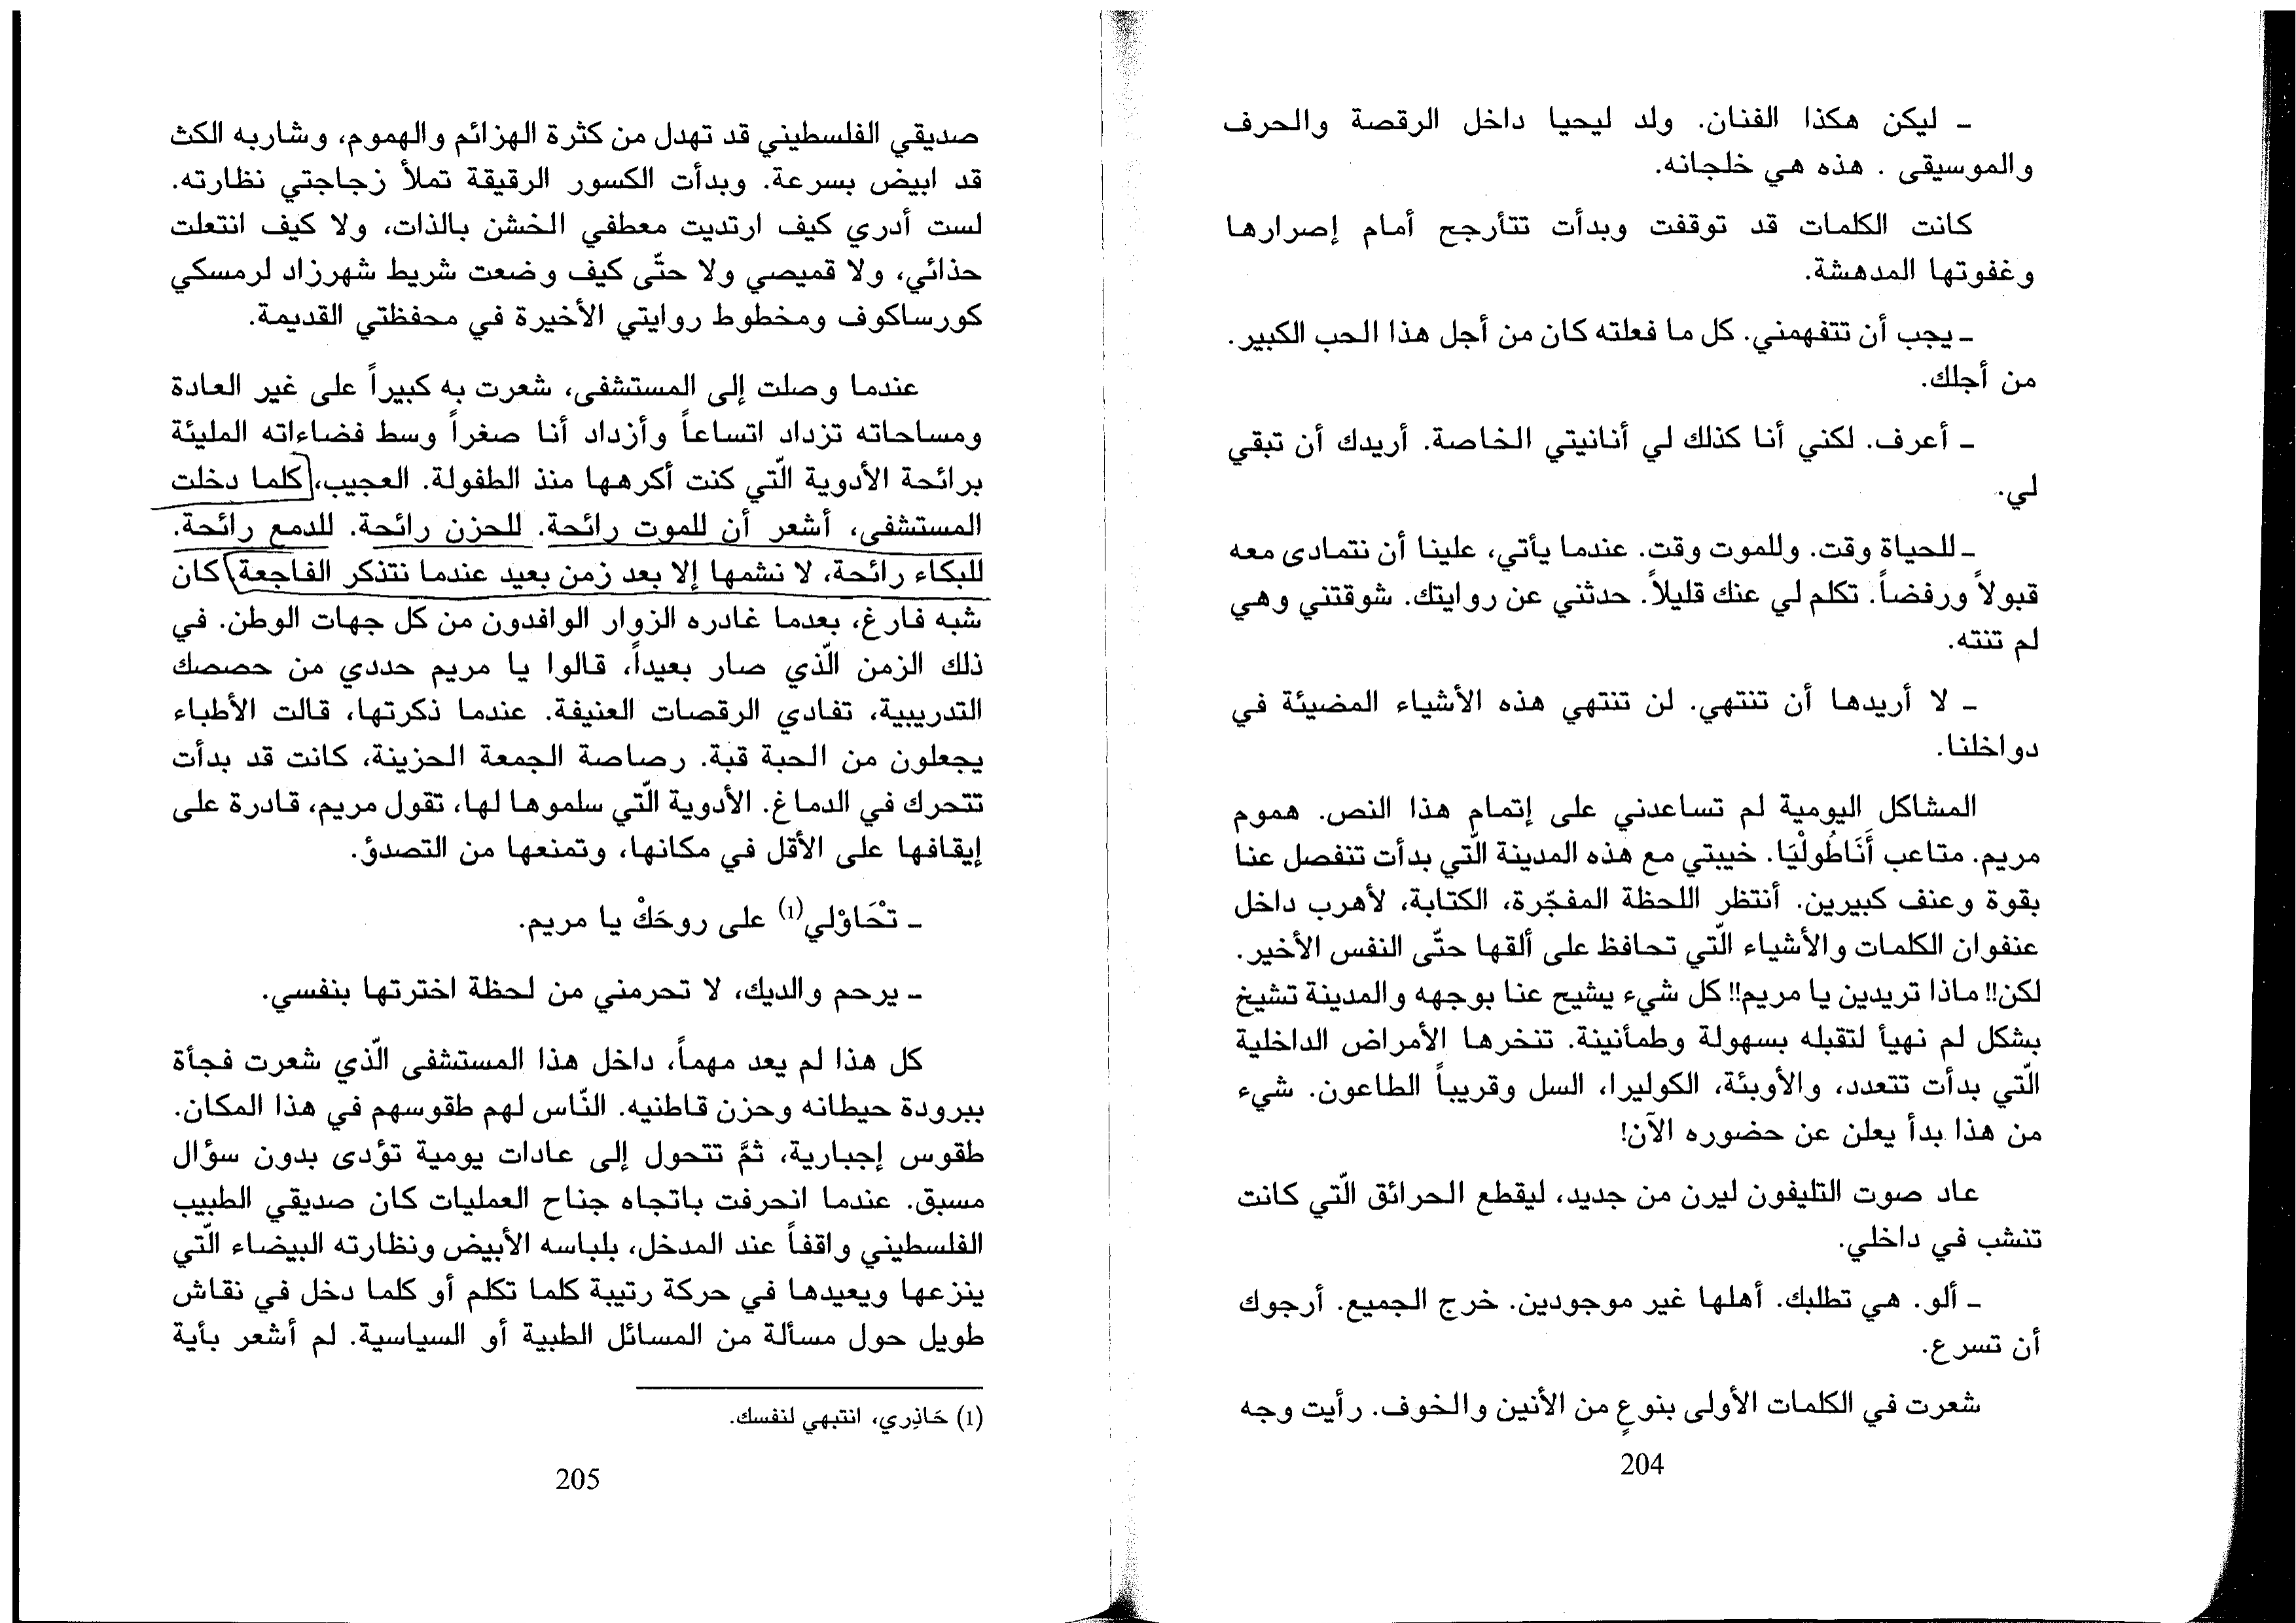 ـ ليكن هكذا الفنان. ولد ليحيا داخل الرقصة والحرف
والموسيقى . هذه هي خلجانه.
كانت الكلمات قد توقفت وبدأت تتأرجح أمام إصرارها
وغفوتها المدهشة.
ـ يجب أن تتفهمني. كل ما فعلته كان من أجل هذا الحب الكبير.
من أجلك.
ـ أعرف. لكني أنا كذلك لي أنانيتي الخاصة. أريدك أن تبقي
لي.
ـ للحياة وقت. وللموت وقت. عندما يأتي، علينا أن نتمادى معه
قبولاً ورفضاً. تكلم لي عنك قليلاً. حدثني عن روايتك. شوقتني وهي
لم تنته.
ـ لا أريدها أن تنتهي. لن تنتهي هذه الأشياء المضيئة في
دواخلنا.
المشاكل اليومية لم تساعدني على إتمام هذا النص. هموم
مريم. متاعب أَنَاطُولْيَا. خيبتي مع هذه المدينة الّتي بدأت تنفصل عنا
بقوة وعنف كبيرين. أنتظر اللحظة المفجّرة، الكتابة، لأهرب داخل
عنفوان الكلمات والأشياء الّتي تحافظ على ألقها حتّى النفس الأخير.
لكن!! ماذا تريدين يا مريم!! كل شيء يشيح عنا بوجهه والمدينة تشيخ
بشكل لم نهيأ لتقبله بسهولة وطمأنينة. تنخرها الأمراض الداخلية
الّتي بدأت تتعدد، والأوبئة، الكوليرا، السل وقريباً الطاعون. شيء
من هذا بدأ يعلن عن حضوره الآن!
عاد صوت التليفون ليرن من جديد، ليقطع الحرائق الّتي كانت
تنشب في داخلي.
ـ ألو. هي تطلبك. أهلها غير موجودين. خرج الجميع. أرجوك
أن تسرع.
شعرت في الكلمات الأولى بنوعٍ من الأنين والخوف. رأيت وجه
204
صديقي الفلسطيني قد تهدل من كثرة الهزائم والهموم، وشاربه الكث
قد ابيض بسرعة. وبدأت الكسور الرقيقة تملأ زجاجتي نظارته.
لست أدري كيف ارتديت معطفي الخشن بالذات، ولا كيف انتعلت
حذائي، ولا قميصي ولا حتّى كيف وضعت شريط شهرزاد لرمسكي
كورساكوف ومخطوط روايتي الأخيرة في محفظتي القديمة.
عندما وصلت إلى المستشفى، شعرت به كبيراً على غير العادة
ومساحاته تزداد اتساعاً وأزداد أنا صغراً وسط فضاءاته المليئة
برائحة الأدوية الّتي كنت أكرهها منذ الطفولة. العجيب، كلما دخلت
المستشفى، أشعر أن للموت رائحة. للحزن رائحة. للدمع رائحة.
للبكاء رائحة، لا نشمها إلا بعد زمن بعيد عندما نتذكر الفاجعة كان
شبه فارغ، بعدما غادره الزوار الوافدون من كل جهات الوطن. في
ذلك الزمن الّذي صار بعيداً، قالوا يا مريم حددي من حصصك
التدريبية، تفادي الرقصات العنيفة. عندما ذكرتها، قالت الأطباء
يجعلون من الحبة قبة. رصاصة الجمعة الحزينة، كانت قد بدأت
تتحرك في الدماغ. الأدوية الّتي سلموها لها، تقول مريم، قادرة على
إيقافها على الأقل في مكانها، وتمنعها من التصدؤ.
ـ تْحَاوْلي(1) على روحَكْ يا مريم.
ـ يرحم والديك، لا تحرمني من لحظة اخترتها بنفسي.
كل هذا لم يعد مهماً، داخل هذا المستشفى الّذي شعرت فجأة
ببرودة حيطانه وحزن قاطنيه. النّاس لهم طقوسهم في هذا المكان.
طقوس إجبارية، ثمَّ تتحول إلى عادات يومية تؤدى بدون سؤال
مسبق. عندما انحرفت باتجاه جناح العمليات كان صديقي الطبيب
الفلسطيني واقفاً عند المدخل، بلباسه الأبيض ونظارته البيضاء الّتي
ينزعها ويعيدها في حركة رتيبة كلما تكلم أو كلما دخل في نقاش
طويل حول مسألة من المسائل الطبية أو السياسية. لم أشعر بأية
(1) حَاذِري، انتبهي لنفسك.
205